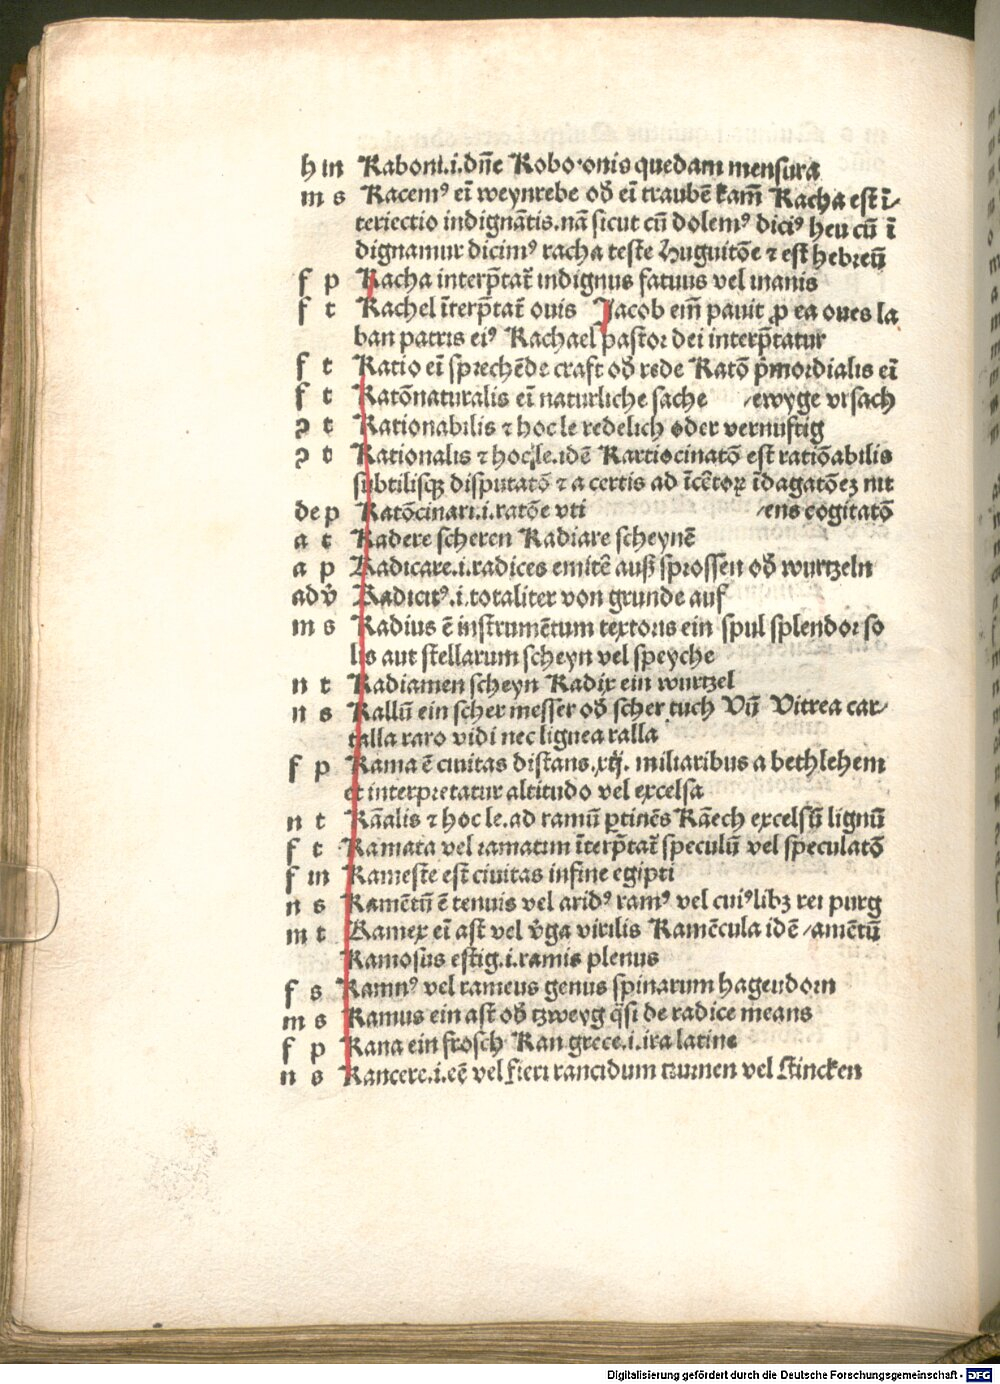 h in Raboni.i.dn̄e Robo·onis quedam mensura
m s Racemꝰ eī weynrebe od̕ eī traubē kam̄ Racha est ī-
teriectio indignātis.nā sicut cū dolemꝰ diciꝰ heu cū ī
dignamur dicimꝰ racha teste Huguitōe ⁊ est hebreū
f p Racha interp̄tat̄ indignus fatuus vel inanis
f t Rachel īterp̄tat̄ ouis Jacob em̄ pauit ꝓ ea oues la
ban patris eiꝰ Rachael pastor dei interp̄tatur
f t Ratio eī sprechēde craft od̕ rede Ratō p̄mordialis eī
f t Ratōnaturalis eī naturliche sache /ewyge vrsach
ꝯ t Rationabilis ⁊ hoc le redelich oder vernuftig
ꝯ t Rationalis ⁊ hoc le.idē Rartiocinatō est ratiōabilis
subtilisqꝫ disputatō ⁊ a certis ad īcētoꝝ īdagatōeꝫ nit
de p Ratōcinari.i.ratōe vti /ens cogitatō
a t Radere scheren Radiare scheynē
a p Radicare.i.radices emitē auß sprossen od̕ wurtzeln
adv̄ Radicitꝰ.i.totaliter von grunde auf
m s Radius ē instrumētum textoris ein spul splendor so
lis aut stellarum scheyn vel speyche
n t Radiamen scheyn Radix ein wurtzel
n s Rallū ein scher messer od̕ scher tuch Vn̄ Vitrea car-
talla raro vidi nec lignea ralla
f p Rama ē ciuitas distans.xij. miliaribus a bethlehem
et interpretatur altitudo vel excelsa
n t Rāalis ⁊ hoc le.ad ramū ꝑtinēs Rāech excelsū lignū
f t Ramata vel ramatim īterp̄tat̄ speculū vel speculatō
f in Rameste est ciuitas infine egipti
n s Ramētū ē tenuis vel aridꝰ ramꝰ vel cuiꝰlibꝫ rei purg
m t Ramex eī ast vel v̄ga virilis Ramēcula idē /amētū
Ramosus estig.i.ramis plenus
f s Ramnꝰ vel rameus genus spinarum hagendorn
m s Ramus ein ast od̕ tzweyg q̄si de radice means
f p Rana ein frosch Ran grece.i.ira latine
n s Rancere.i.eē vel fieri rancidum tzurnen vel stincken
Digitalisierung gefördert durch die Deutsche Forschungsgemeinschaft - DFG